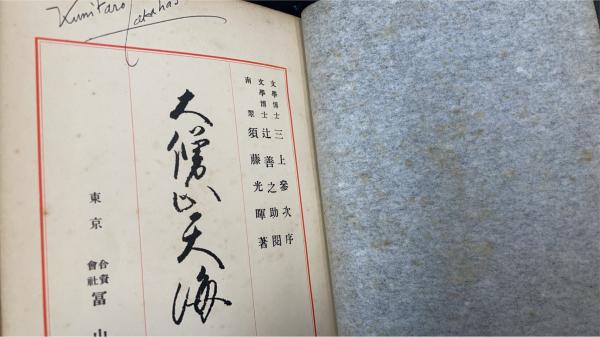 Kunitaro Takahas
文學博士 三上參次序
文學博士 辻善之助閲
南翠 須藤光暉著
大僧正天海
東京 合資會社 冨山